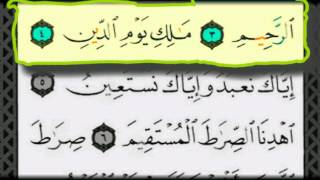 الرَّحِيمِ ٣ مَٰلِكِ يَوْمِ ٱلدِّينِ ٤
إِيَّاكَ نَعْبُدُ وَإِيَّاكَ نَسْتَعِينُ ٥
ٱهْدِنَا ٱلصِّرَٰطَ ٱلْمُسْتَقِيمَ ٦ صِرَٰطَ